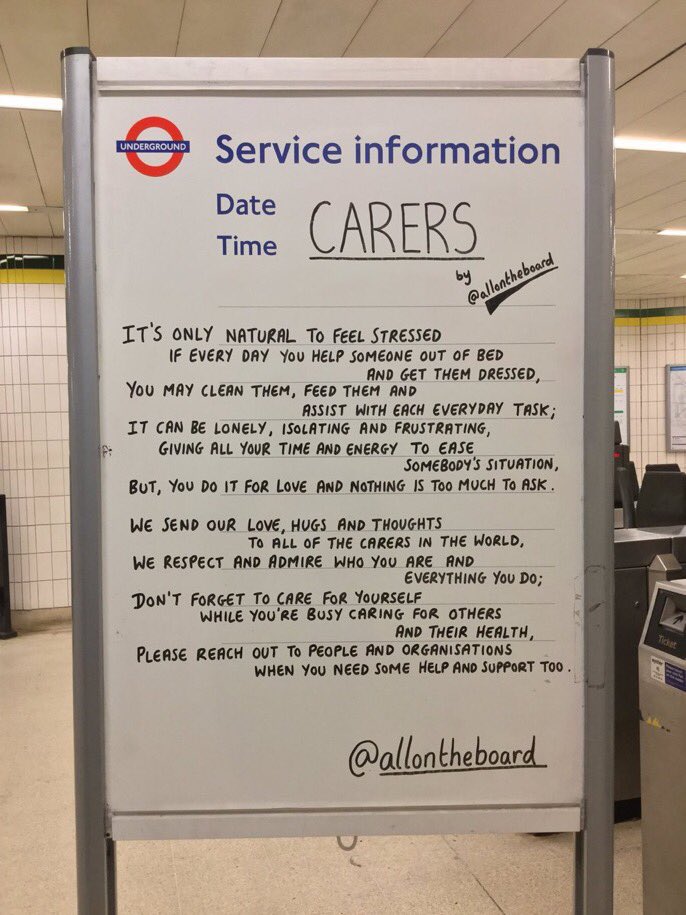 UNDERGROUND
Service information
Date
Time
CARERS
by
@allontheboard
IT'S ONLY NATURAL TO FEEL STRESSED
IF EVERY DAY YOU HELP SOMEONE OUT OF BED
AND GET THEM DRESSED,
YOU MAY CLEAN THEM, FEED THEM AND
ASSIST WITH EACH EVERYDAY TASK;
IT CAN BE LONELY, ISOLATING AND FRUSTRATING,
GIVING ALL YOUR TIME AND ENERGY TO EASE
SOMEBODY'S SITUATION,
BUT, YOU DO IT FOR LOVE AND NOTHING IS TOO MUCH TO ASK.
WE SEND OUR LOVE, HUGS AND THOUGHTS
TO ALL OF THE CARERS IN THE WORLD,
WE RESPECT AND ADMIRE WHO YOU ARE AND
EVERYTHING YOU DO;
DON'T FORGET TO CARE FOR YOURSELF
WHILE YOU'RE BUSY CARING FOR OTHERS
AND THEIR HEALTH,
PLEASE REACH OUT TO PEOPLE AND ORGANISATIONS
WHEN YOU NEED SOME HELP AND SUPPORT TOO.
@allontheboard
Ticket